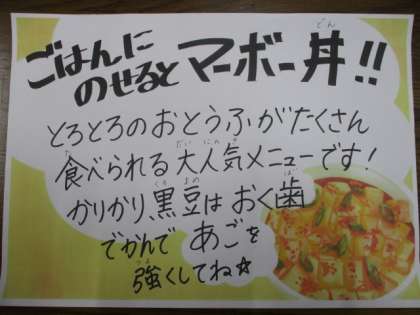 ごはんに
のせると マーボー丼!!
とろとろのおとうふがたくさん
食べられる大人気メニューです!
かりかり、黒豆は おく歯
でかんで あごを
強くしてね☆